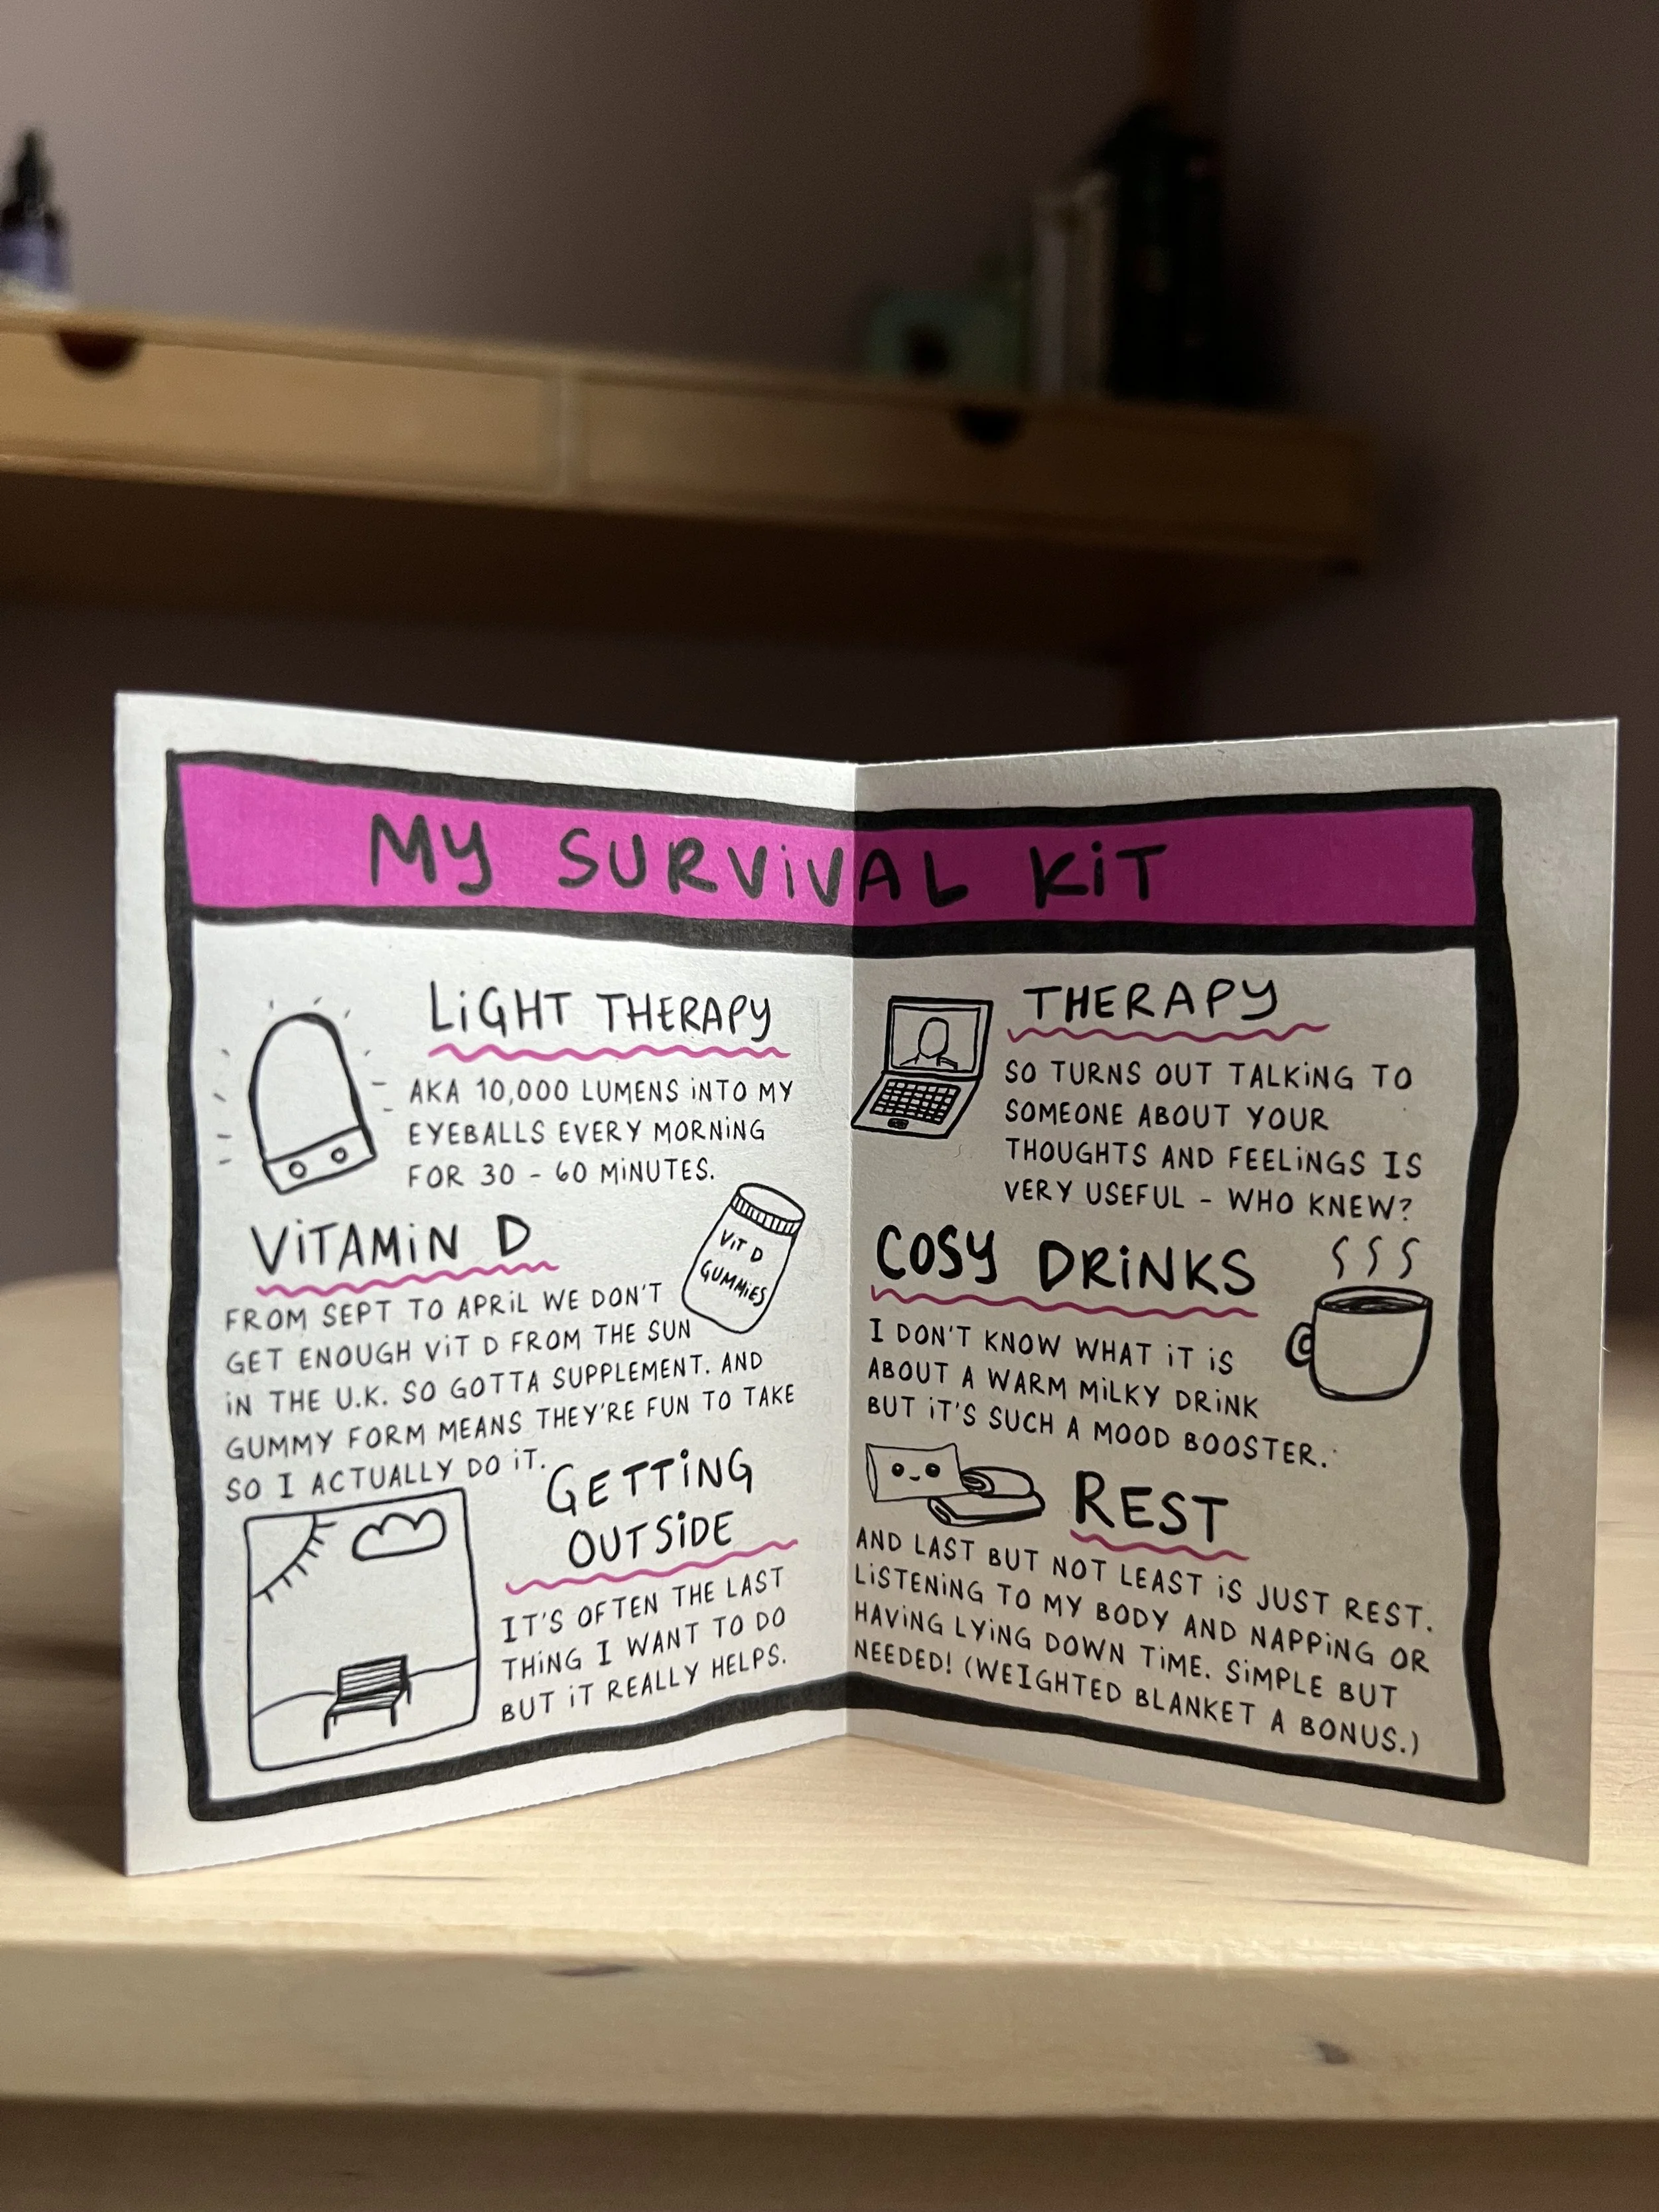 MY SURViVAL KiT
LiGHT THERAPY
AKA 10,000 LUMENS iNTO MY
EYEBALLS EVERY MORNiNG
FOR 30 - 60 MiNUTES.
ViTAMiN D
ViT D
GUMMiES
FROM SEPT TO APRiL WE DON'T
GET ENOUGH ViT D FROM THE SUN
iN THE U.K. SO GOTTA SUPPLEMENT. AND
GUMMY FORM MEANS THEY'RE FUN TO TAKE
SO I ACTUALLY DO iT.
GETTiNG
OUTSiDE
IT'S OFTEN THE LAST
THiNG I WANT TO DO
BUT iT REALLY HELPS.
THERAPY
SO TURNS OUT TALKiNG TO
SOMEONE ABOUT YOUR
THOUGHTS AND FEELiNGS IS
VERY USEFUL - WHO KNEW?
COSY DRiNKS
I DON'T KNOW WHAT iT iS
ABOUT A WARM MiLKY DRiNK
BUT iT'S SUCH A MOOD BOOSTER.
REST
AND LAST BUT NOT LEAST iS JUST REST.
LiSTENiNG TO MY BODY AND NAPPiNG OR
HAViNG LYiNG DOWN TiME. SiMPLE BUT
NEEDED! (WEIGHTED BLANKET A BONUS.)